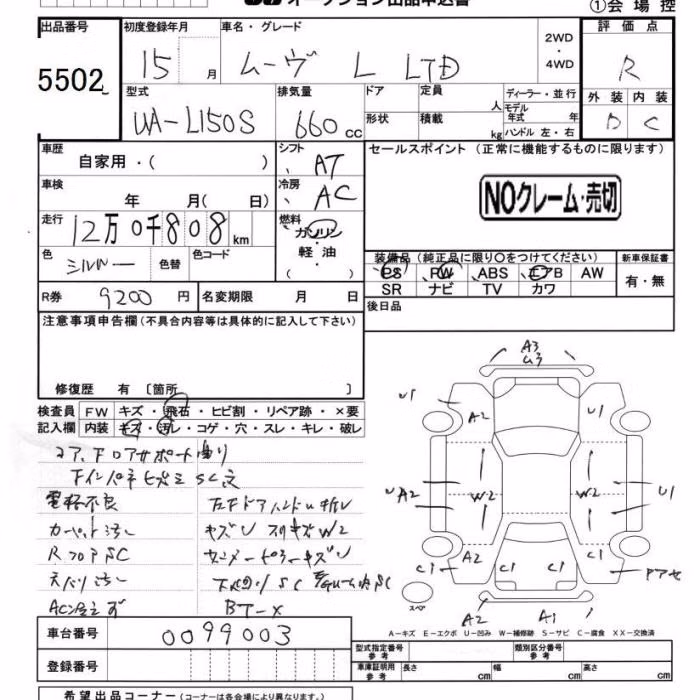 オークション出品申込書
①会場控
出品番号 初度登録年月 車名・グレード 2WD・4WD 評価点
5502 15月 ムーヴ L LTD R
型式 排気量 ドア 定員 人 ディーラー・並行 外装 内装
UA-L150S 660cc 形状 積載 kg モデル年式 年 ハンドル 左・右 D C
車歴 自家用・( ) シフト AT セールスポイント (正常に機能するものに限ります)
車検 年 月( 日) 冷房 AC NOクレーム・売切
走行 12万0千808km 燃料 ガソリン 軽・油 ( )
色 シルバー 色替 色コード 装備品 (純正品に限り○をつけてください) 新車保証書
PS PW ABS エアB AW 有・無
SR ナビ TV カワ
R券 9200円 名変期限 月 日 後日品
注意事項申告欄 (不具合内容等は具体的に記入して下さい)
修復歴 有 〔箇所 〕
検査員 FW キズ・飛石・ヒビ割・リペア跡・×要
記入欄 内装 キズ・汚レ・コゲ・穴・スレ・キレ・破レ
コア、
電格不良
カーペット汚レ
RフロアSC
キズU W2
BT-X
A3
U1 A2 U1
A2 W2 W2 U1
A2 C1 C1 C1 C1
スペア A2 A1
A-キズ E-エクボ U-凹み W-補修跡 S-サビ C-腐食 XX-交換済
車台番号 0099003
型式指定番号 参考 類別区分番号 参考
登録番号 車庫証明用 参考 長さ cm 幅 cm 高さ cm
希望出品コーナー (コーナーは各会場により異なります。)